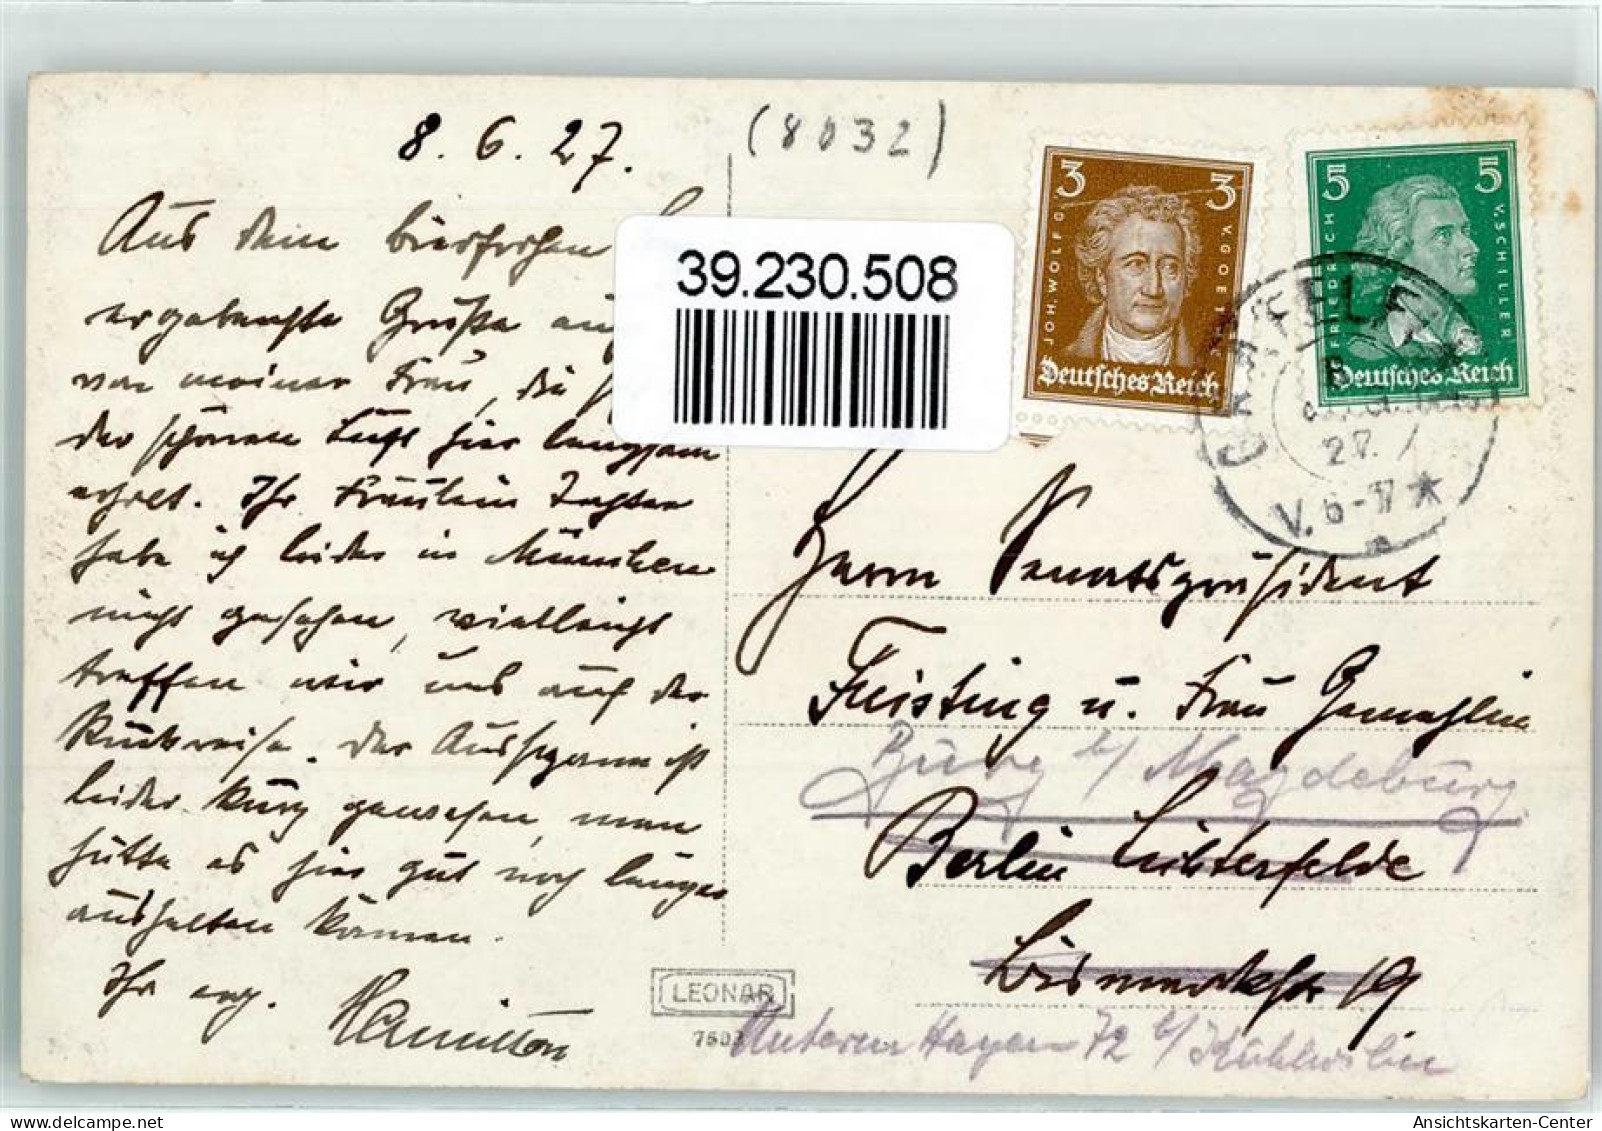 8. 6. 27.
(8032)
Aus dem bierfrohen
ergebenste Grüße
von meiner Frau, die
der schönen Luft hier langsam
erholt. Ihr Fräulein Tochter
habe ich leider in München
nicht gesehen, vielleicht
treffen wir uns auf der
Rückreise. Der Ausspann ist
leider kurz gewesen, man
hätte es hier gut noch länger
aushalten können.
Ihr erg.
Hamilton
39.230.508
3 3
JOH. WOLFG. V. GOETHE
Deutsches Reich
5 5
FRIEDRICH V. SCHILLER
Deutsches Reich
27.
V. 6-7 ★
Herrn Senatspräsident
Feisting u. Frau Gemahlin
Burg b/ Magdeburg
Berlin Lichterfelde
Bismarckstr 19
Unterm Hagen 72 b/
LEONAR
Ansichtskarten-Center